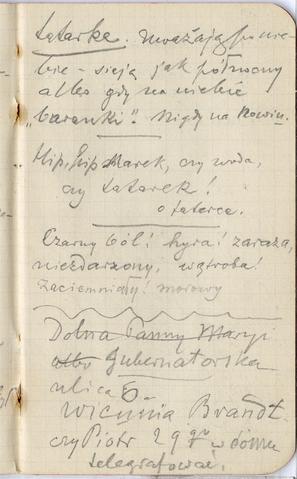 tatarkę. Uważają po nie-
bie - sieją jak północny
albo gdy na niebie
"baranki". Nigdy na Nowiu.
Hip, hip Marek, czy woda,
czy tatarek!
o tatarce.
Czarny ból! hyra! zaraza,
niezdarzony, wątroba!
Zaciemniały! morowy
Dolna Panny Maryi
albo Gubernatorska
ulica 6
Brandt
czy Piotr 29 go w domu
telegrafować.